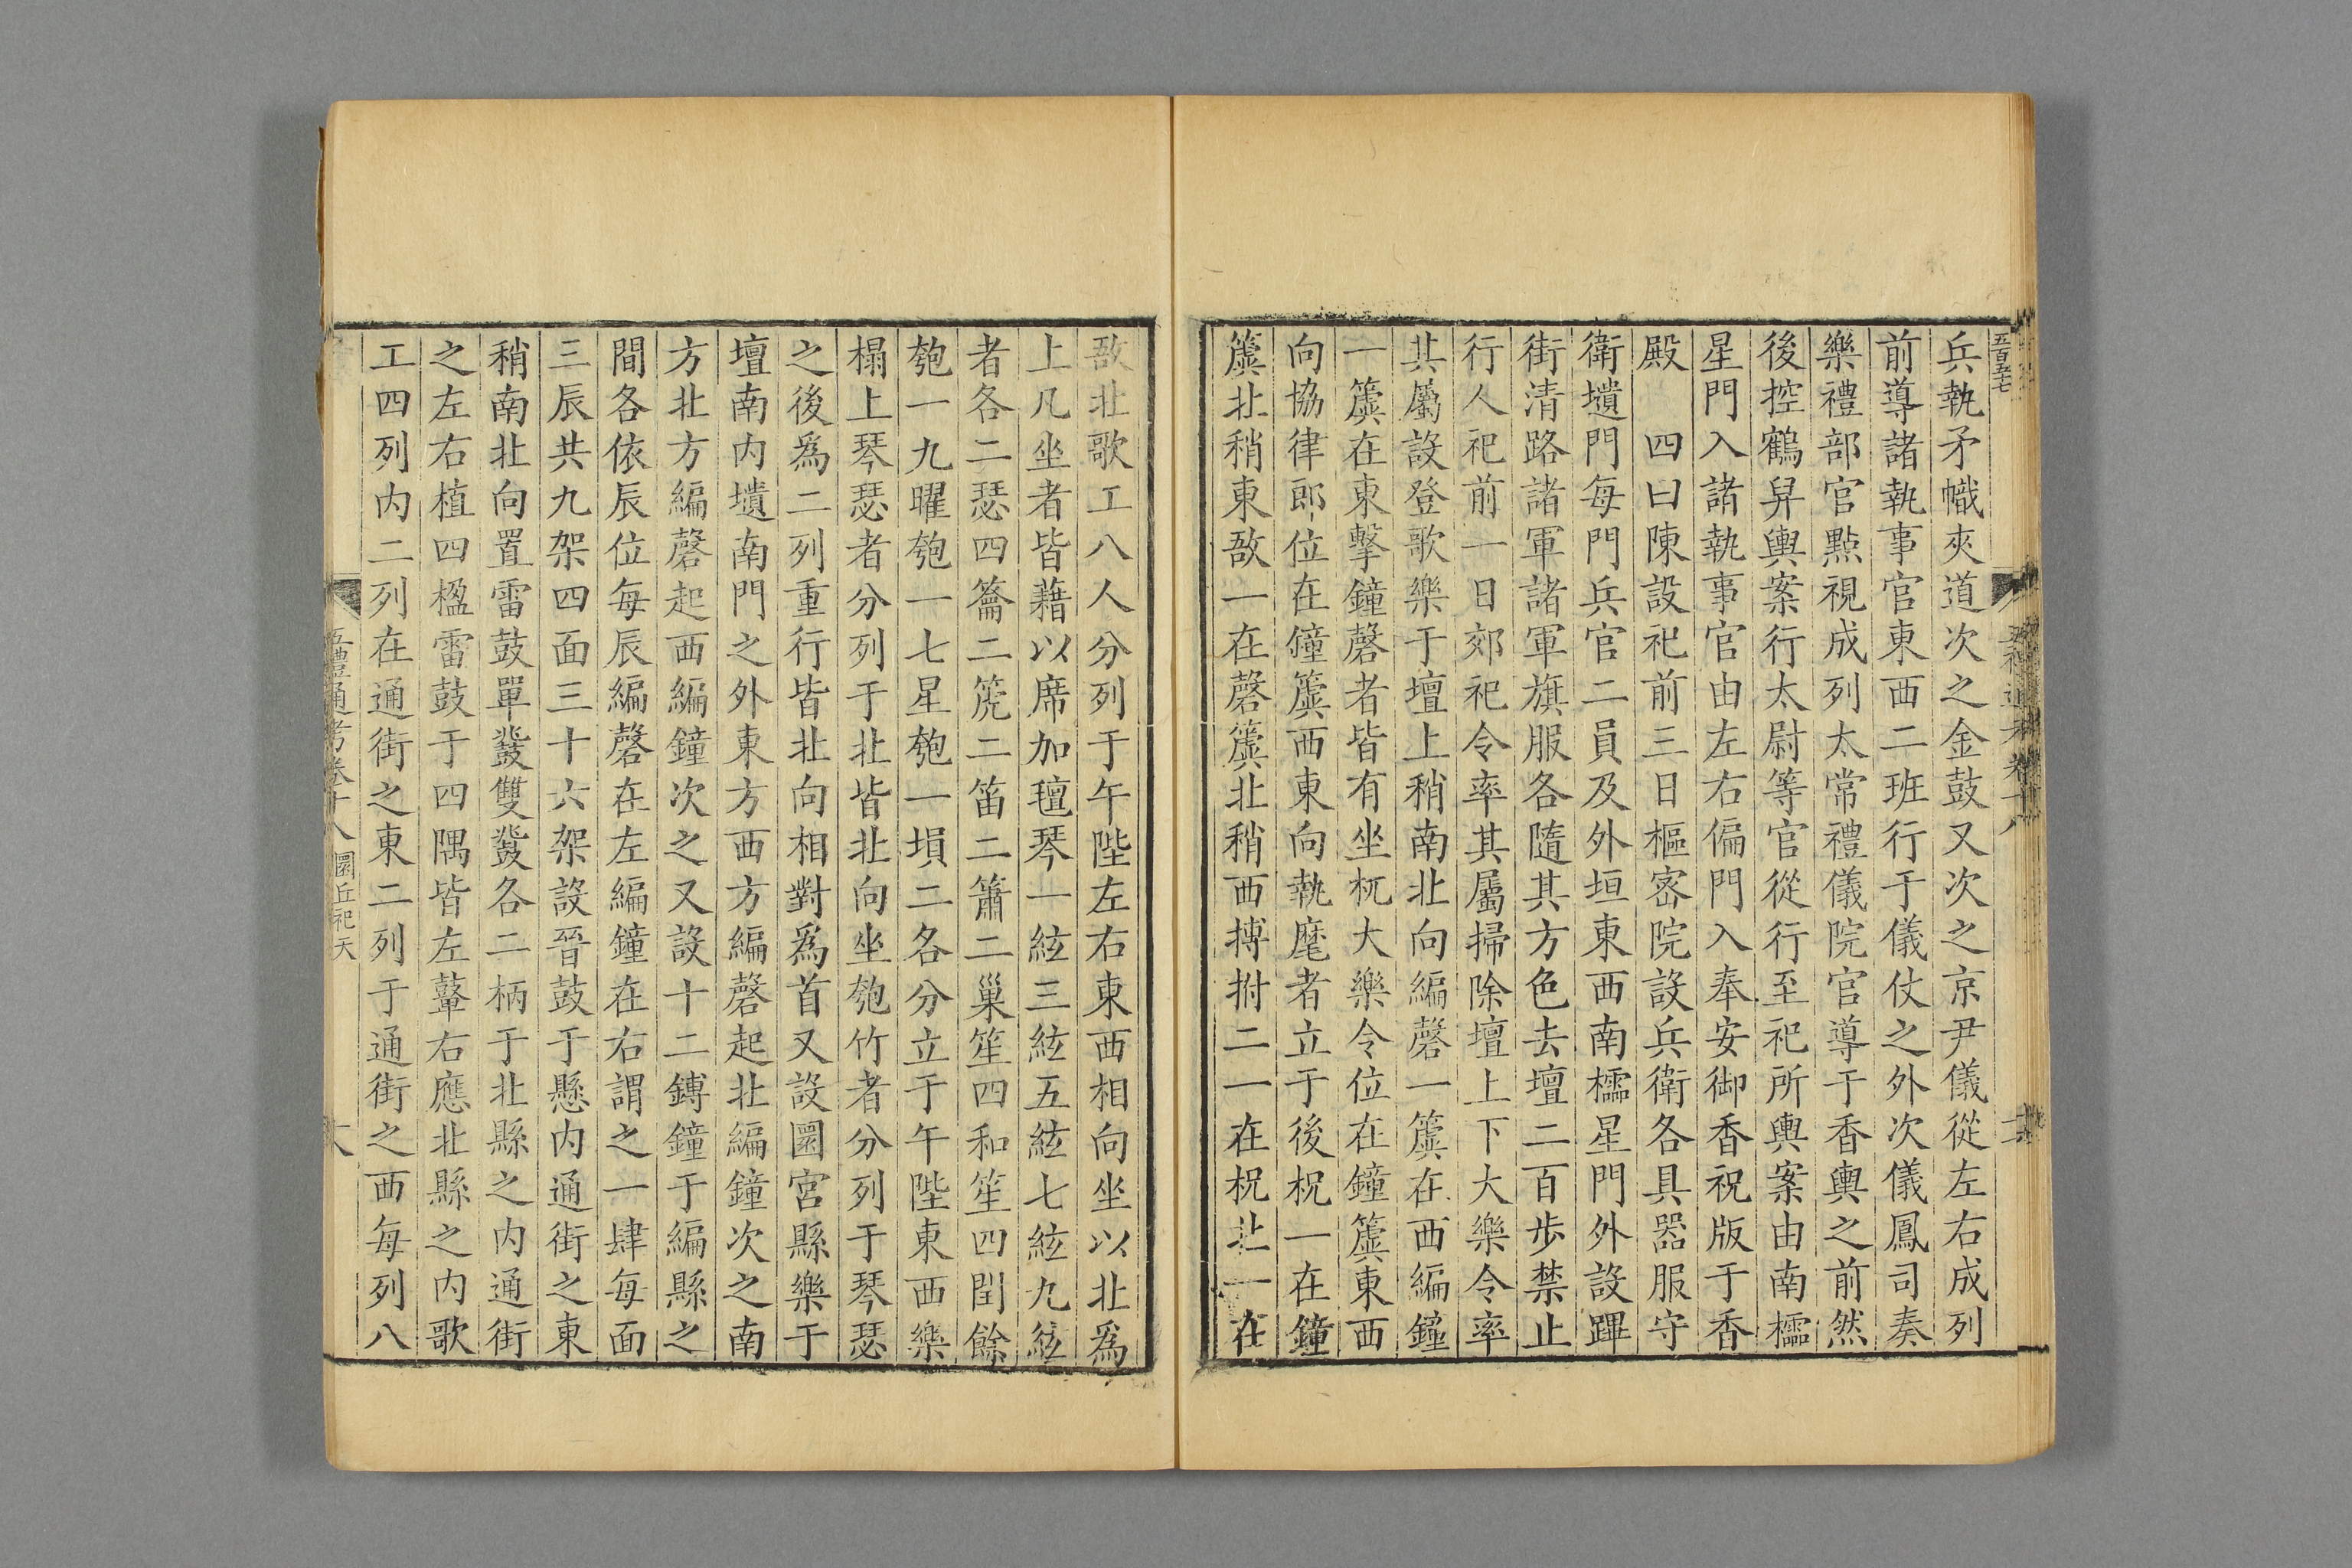 兵執矛幟夾道次之金鼓又次之京尹儀從左右成列
前導諸執事官東西二班行于儀仗之外次儀鳳司奏
樂禮部官點視成列太常禮儀院官導于香輿之前然
後控鶴舁輿案行太尉等官從行至祀所輿案由南櫺
星門入諸執事官由左右偏門入奉安御香祝版于香
殿　四曰陳設祀前三日樞宻院設兵衛各具器服守
衛壝門每門兵官二員及外垣東西南櫺星門外設蹕
街清路諸軍諸軍旗服各隨其方色去壇二百歩禁止
行人祀前一日郊祀令率其屬掃除壇上下大樂令率
其屬設登歌樂于壇上稍南北向編磬一簴在西編鐘
一簴在東擊鐘磬者皆有坐杌大樂令位在鐘簴東西
向協律郎位在鐘簴西東向執麾者立于後柷一在鐘
簴北稍東敔一在磬簴北稍西搏拊二一在柷北一在
敔北歌工八人分列于午陛左右東西相向坐以北爲
上凡坐者皆藉以席加氊琴一絃三絃五絃七絃九絃
者各二瑟四籥二篪二笛二簫二巢笙四和笙四閏餘
匏一九曜匏一七星匏一塤二各分立于午陛東西樂
榻上琴瑟者分列于北皆北向坐匏竹者分列于琴瑟
之後爲二列重行皆北向相對爲首又設圜宮縣樂于
壇南内壝南門之外東方西方編磬起北編鐘次之南
方北方編磬起西編鐘次之又設十二鎛鐘于編縣之
間各依辰位每辰編磬在左編鐘在右謂之一肆每面
三辰共九架四面三十六架設晉鼓于懸内通街之東
稍南北向置雷鼓單鼗雙鼗各二柄于北縣之内通街
之左右植四楹雷鼓于四隅皆左鼙右應北縣之内歌
工四列内二列在通街之東二列于通街之西每列八
五禮通考卷十八 圜丘祀天